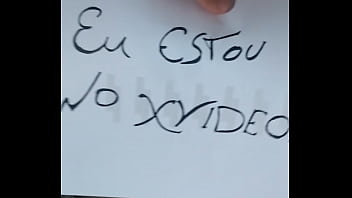 EU ESTOU
NO XVIDEO